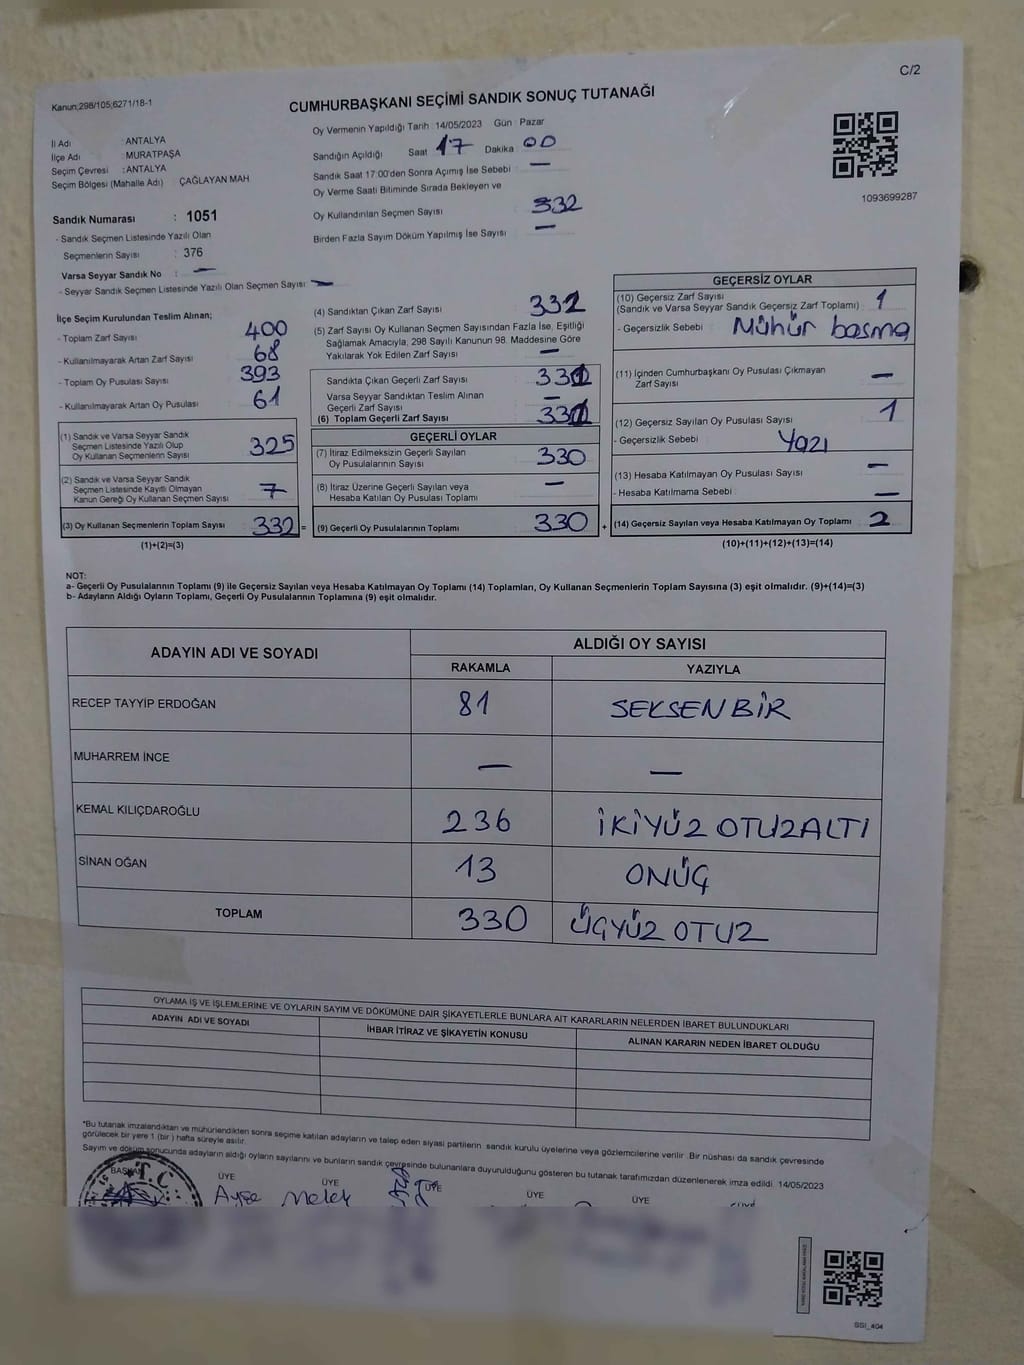 C/2
Kanun;298/105;6271/18-1
CUMHURBAŞKANI SEÇİMİ SANDIK SONUÇ TUTANAĞI
İl Adı : ANTALYA
İlçe Adı : MURATPAŞA
Seçim Çevresi : ANTALYA
Seçim Bölgesi (Mahalle Adı) : ÇAĞLAYAN MAH
Sandık Numarası : 1051
- Sandık Seçmen Listesinde Yazılı Olan
Seçmenlerin Sayısı : 376
Varsa Seyyar Sandık No : —
- Seyyar Sandık Seçmen Listesinde Yazılı Olan Seçmen Sayısı: —
Oy Vermenin Yapıldığı Tarih : 14/05/2023 Gün : Pazar
Sandığın Açıldığı Saat 17 Dakika 00
Sandık Saat 17:00'den Sonra Açımış İse Sebebi : —
Oy Verme Saati Bitiminde Sırada Bekleyen ve
Oy Kullandırılan Seçmen Sayısı 332
Birden Fazla Sayım Döküm Yapılmış İse Sayısı : —
1093699287
İlçe Seçim Kurulundan Teslim Alınan;
- Toplam Zarf Sayısı : 400
- Kullanılmayarak Artan Zarf Sayısı : 68
- Toplam Oy Pusulası Sayısı : 393
- Kullanılmayarak Artan Oy Pusulası : 61
(1) Sandık ve Varsa Seyyar Sandık
Seçmen Listesinde Yazılı Olup
Oy Kullanan Seçmenlerin Sayısı 325
(2) Sandık ve Varsa Seyyar Sandık
Seçmen Listesinde Kayıtlı Olmayan
Kanun Gereği Oy Kullanan Seçmen Sayısı 7
(3) Oy Kullanan Seçmenlerin Toplam Sayısı 332 =
(1)+(2)=(3)
(4) Sandıktan Çıkan Zarf Sayısı 332
(5) Zarf Sayısı Oy Kullanan Seçmen Sayısından Fazla İse, Eşitliği
Sağlamak Amacıyla, 298 Sayılı Kanunun 98. Maddesine Göre
Yakılarak Yok Edilen Zarf Sayısı —
Sandıkta Çıkan Geçerli Zarf Sayısı 331
Varsa Seyyar Sandıktan Teslim Alınan
Geçerli Zarf Sayısı —
(6) Toplam Geçerli Zarf Sayısı 331
GEÇERLİ OYLAR
(7) İtiraz Edilmeksizin Geçerli Sayılan
Oy Pusulalarının Sayısı 330
(8) İtiraz Üzerine Geçerli Sayılan veya
Hesaba Katılan Oy Pusulası Toplamı —
(9) Geçerli Oy Pusulalarının Toplamı 330 +
GEÇERSİZ OYLAR
(10) Geçersiz Zarf Sayısı
(Sandık ve Varsa Seyyar Sandık Geçersiz Zarf Toplamı) : 1
- Geçersizlik Sebebi : Mühür basma
(11) İçinden Cumhurbaşkanı Oy Pusulası Çıkmayan
Zarf Sayısı —
(12) Geçersiz Sayılan Oy Pusulası Sayısı 1
- Geçersizlik Sebebi : Yazı
(13) Hesaba Katılmayan Oy Pusulası Sayısı —
- Hesaba Katılmama Sebebi : —
(14) Geçersiz Sayılan veya Hesaba Katılmayan Oy Toplamı 2
(10)+(11)+(12)+(13)=(14)
NOT:
a- Geçerli Oy Pusulalarının Toplamı (9) ile Geçersiz Sayılan veya Hesaba Katılmayan Oy Toplamı (14) Toplamları, Oy Kullanan Seçmenlerin Toplam Sayısına (3) eşit olmalıdır. (9)+(14)=(3)
b- Adayların Aldığı Oyların Toplamı, Geçerli Oy Pusulalarının Toplamına (9) eşit olmalıdır.
ADAYIN ADI VE SOYADI ALDIĞI OY SAYISI
RAKAMLA YAZIYLA
RECEP TAYYİP ERDOĞAN 81 SEKSENBİR
MUHARREM İNCE — —
KEMAL KILIÇDAROĞLU 236 İKİYÜZ OTUZALTI
SİNAN OĞAN 13 ONÜÇ
TOPLAM 330 ÜÇYÜZ OTUZ
OYLAMA İŞ VE İŞLEMLERİNE VE OYLARIN SAYIM VE DÖKÜMÜNE DAİR ŞİKAYETLERLE BUNLARA AİT KARARLARIN NELERDEN İBARET BULUNDUKLARI
ADAYIN ADI VE SOYADI İHBAR İTİRAZ VE ŞİKAYETİN KONUSU ALINAN KARARIN NEDEN İBARET OLDUĞU
*Bu tutanak imzalandıktan ve mühürlendikten sonra seçime katılan adayların ve talep eden siyasi partilerin sandık kurulu üyelerine veya gözlemcilerine verilir. Bir nüshası da sandık çevresinde
görülecek bir yere 1 (bir ) hafta süreyle asılır.
Sayım ve döküm sonucunda adayların aldığı oyların sayılarını ve bunların sandık çevresinde bulunanlara duyurulduğunu gösteren bu tutanak tarafımızdan düzenlenerek imza edildi. 14/05/2023
BAŞKAN ÜYE ÜYE ÜYE ÜYE ÜYE
T.C.
Ayşe Melek
SSI_404